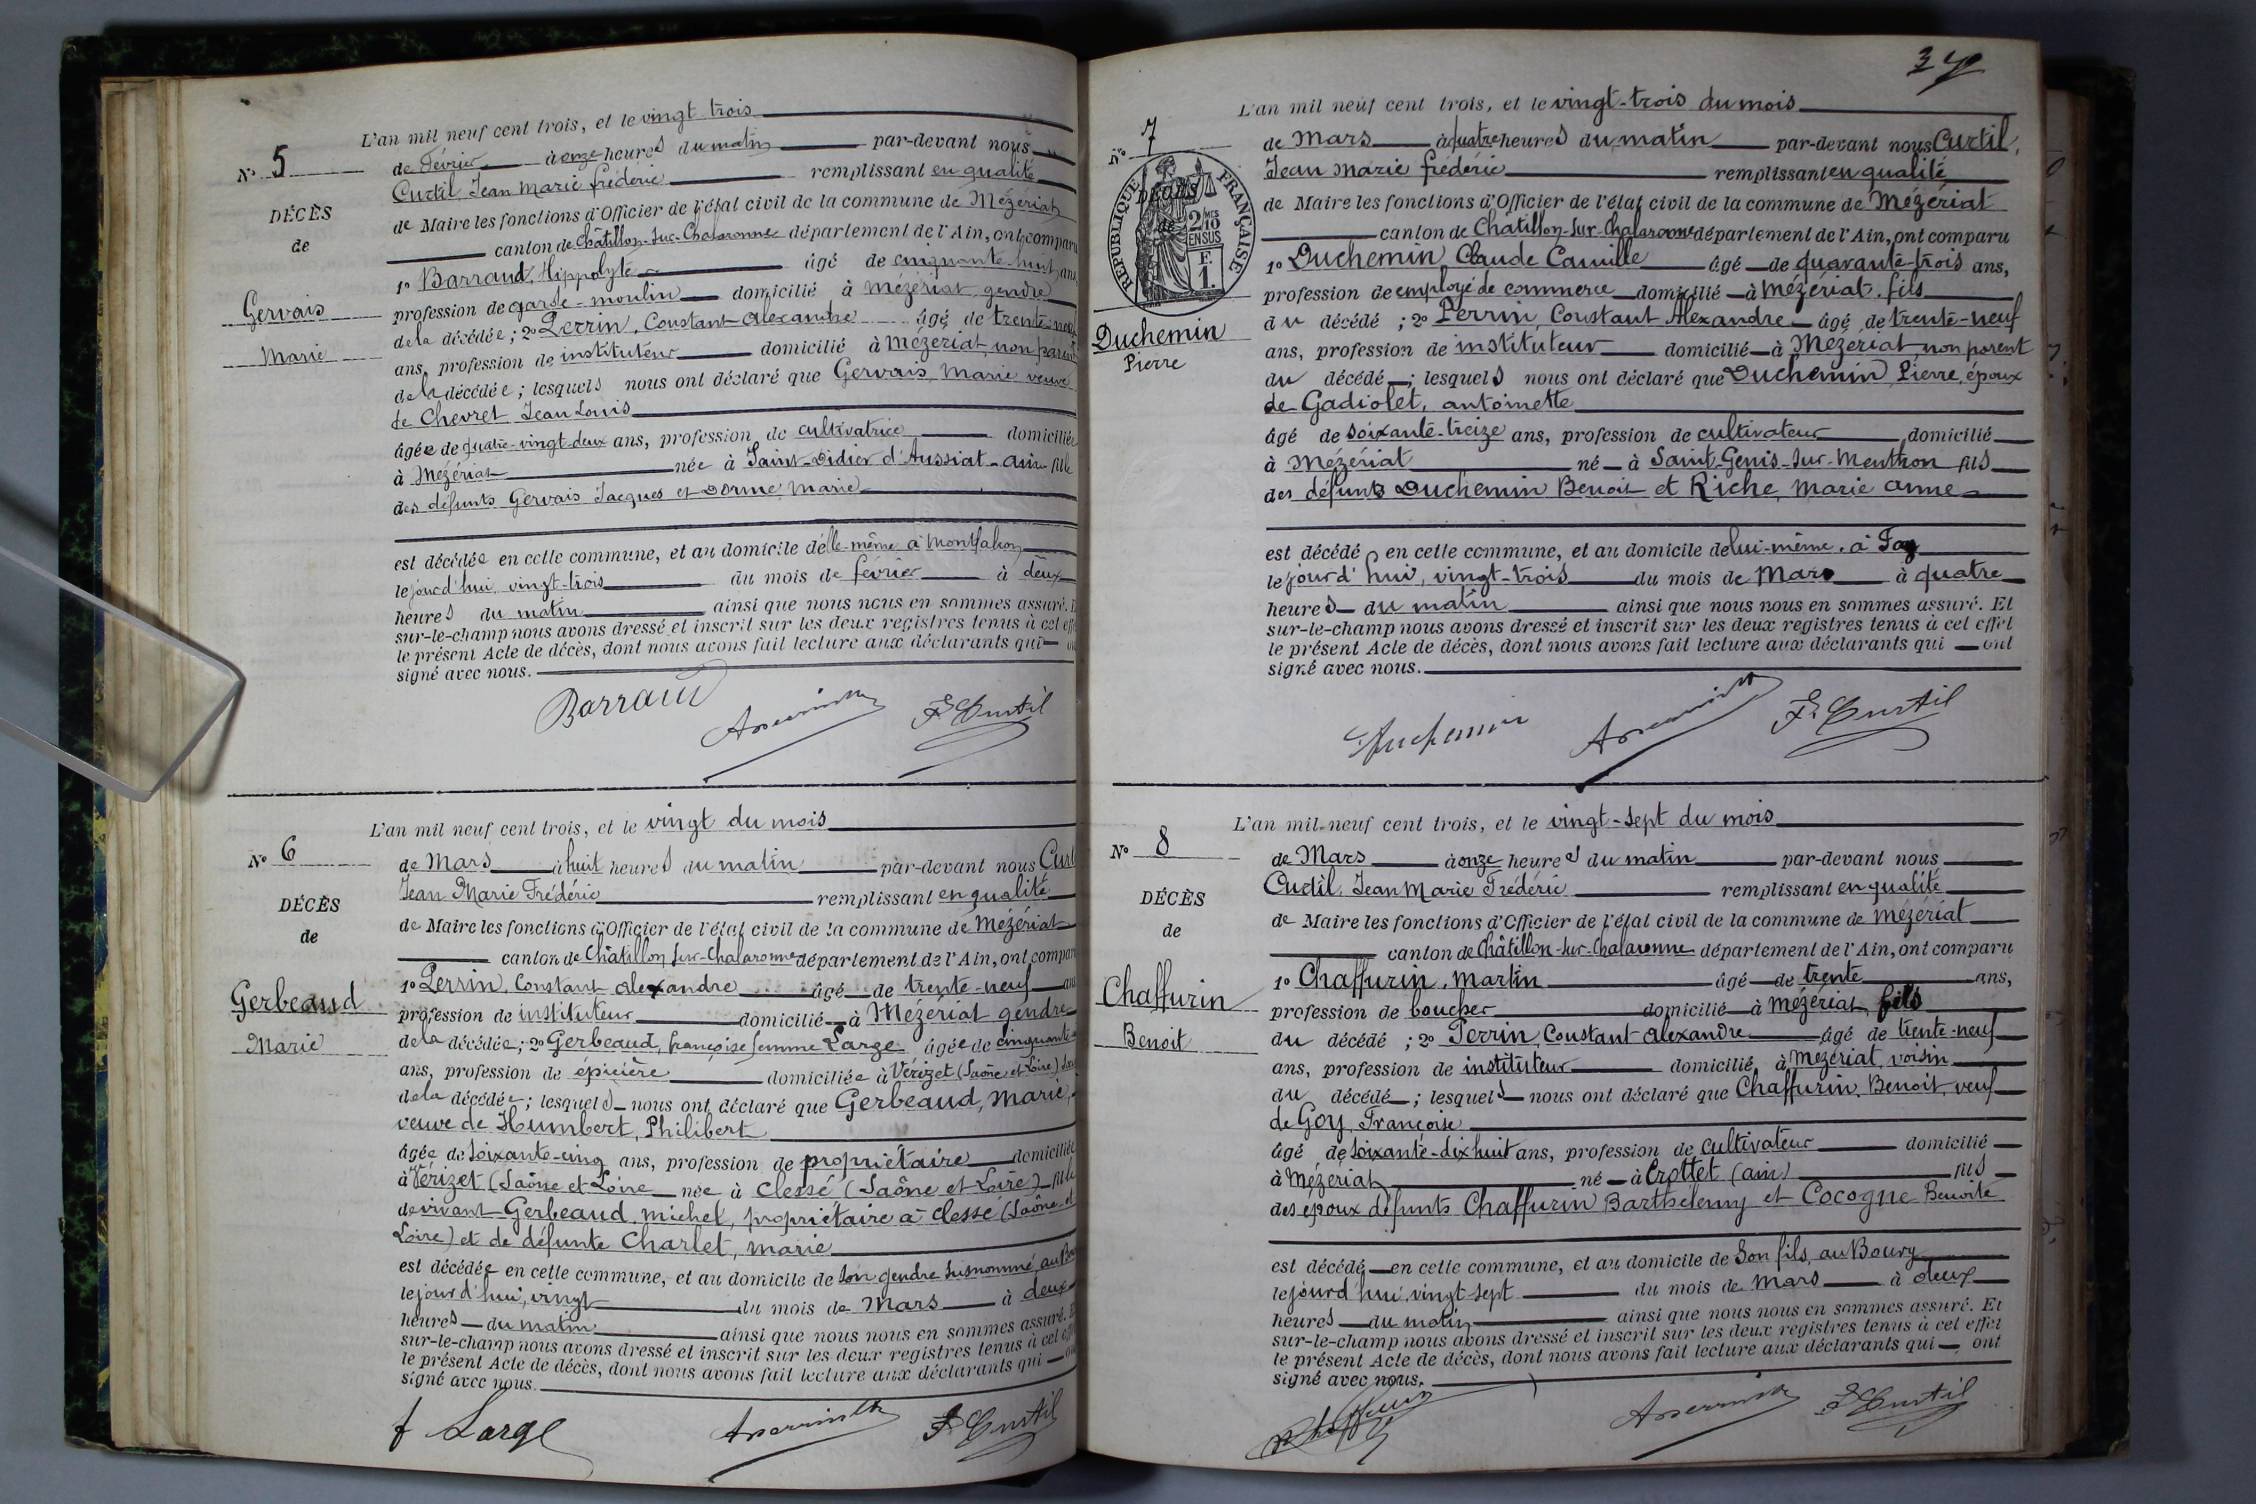 L'an mil neuf cent trois, et le vingt-trois
N° 5
de Février à onze heures du matin par-devant nous
Curtil Jean Marie frédéric remplissant en qualité
DÉCÈS
de
de Maire les fonctions d'Officier de l'état civil de la commune de Mézériat
canton de Châtillon-sur-Chalaronne département de l'Ain, ont comparu
1° Barraud, Hippolyte âgé de cinquante-huit ans
Gervais
Marie
profession de garde-moulin domicilié à Mézériat, gendre
de la décédée; 2° Perrin, Constant Alexandre âgé de trente-neuf
ans, profession de instituteur domicilié à Mézériat, non parent
de la décédée; lesquels nous ont déclaré que Gervais, Marie veuve
de Chevret Jean Louis
âgée de quatre-vingt-deux ans, profession de cultivatrice domiciliée
à Mézériat née à Saint-Didier d'Aussiat-Ain fille
des défunts Gervais Jacques et Dorme, Marie
est décédée en cette commune, et au domicile d'elle-même à Montfalcon
le jourd'hui, vingt-trois du mois de février à deux
heures du matin ainsi que nous nous en sommes assuré. E
sur-le-champ nous avons dressé et inscrit sur les deux registres tenus à cet effe
le présent Acte de décès, dont nous avons fait lecture aux déclarants qui
signé avec nous.
Barraud
F Curtil
L'an mil neuf cent trois, et le vingt du mois
N° 6
de Mars à huit heures du matin par-devant nous Curt
Jean Marie Frédéric remplissant en qualité
DÉCÈS
de
de Maire les fonctions d'Officier de l'état civil de la commune de Mézériat
canton de Châtillon sur-Chalaronne département de l'Ain, ont compar
Gerbeaud
Marie
1° Perrin, Constant alexandre âgé de trente-neuf ans
profession de instituteur domicilié à Mézériat gendre
de la décédée; 2° Gerbeaud, françoise femme Large âgée de cinquante
ans, profession de épicière domiciliée à Vérizet (Saône et Loire)
de la décédée; lesquels nous ont déclaré que Gerbeaud, Marie,
veuve de Humbert, Philibert
âgée de soixante-cinq ans, profession de propriétaire domiciliée
à Vérizet (Saône et Loire née à Clessé (Saône et Loire) fille
de vivant Gerbeaud, michel, propriétaire à Clessé (Saône et
Loire) et de défunte Charlet, marie
est décédée en cette commune, et au domicile de son gendre susnommé, au
le jourd'hui, vingt du mois de Mars à deux
heures du matin ainsi que nous nous en sommes assuré. E
sur-le-champ nous avons dressé et inscrit sur les deux registres tenus à cet eff
le présent Acte de décès, dont nous avons fait lecture aux déclarants qui
signé avec nous.
f Large
F Curtil
37
L'an mil neuf cent trois, et le vingt-trois du mois
N° 7
de Mars à quatre heures du matin par-devant nous Curtil,
Jean Marie frédéric remplissant en qualité
RÉPUBLIQUE FRANÇAISE
DÉCÈS
de
2/10 MES
EN SUS
F.
1.
de Maire les fonctions d'Officier de l'état civil de la commune de Mézériat
canton de Châtillon-sur-Chalaronne département de l'Ain, ont comparu
1° Duchemin Claude Camille âgé de quarante-trois ans,
profession de employé de commerce domicilié à Mézériat, fils
Duchemin
Pierre
du décédé; 2° Perrin, Constant Alexandre âgé de trente-neuf
ans, profession de instituteur domicilié à Mézériat, non parent
du décédé; lesquels nous ont déclaré que Duchemin, Pierre, époux
de Gadiolet, antoinette
âgé de soixante-treize ans, profession de cultivateur domicilié
à Mézériat né à Saint-Genis-sur-Menthon fils
des défunts Duchemin Benoit et Riche, Marie anne
est décédé en cette commune, et au domicile de lui-même, à Fay
le jourd'hui, vingt-trois du mois de Mars à quatre
heures du matin ainsi que nous nous en sommes assuré. Et
sur-le-champ nous avons dressé et inscrit sur les deux registres tenus à cet effet
le présent Acte de décès, dont nous avons fait lecture aux déclarants qui ont
signé avec nous.
Duchemin
F. Curtil
L'an mil neuf cent trois, et le vingt-sept du mois
N° 8
de Mars à onze heures du matin par-devant nous
Curtil, Jean Marie Frédéric remplissant en qualité
DÉCÈS
de
de Maire les fonctions d'Officier de l'état civil de la commune de Mézériat
canton de Châtillon-sur-Chalaronne département de l'Ain, ont comparu
Chaffurin
Benoit
1° Chaffurin, Martin âgé de trente ans,
profession de boucher domicilié à Mézériat, fils
du décédé; 2° Perrin, Constant Alexandre âgé de trente-neuf
ans, profession de instituteur domicilié à Mézériat, voisin
du décédé; lesquels nous ont déclaré que Chaffurin, Benoit, veuf
de Goy, Françoise
âgé de soixante-dix huit ans, profession de cultivateur domicilié
à Mézériat né à Crottet (ain) fils
des époux défunts Chaffurin Barthélemy et Cocogne Benoite
est décédé en cette commune, et au domicile de son fils, au Bourg
le jourd'hui, vingt-sept du mois de mars à deux
heures du matin ainsi que nous nous en sommes assuré. Et
sur-le-champ nous avons dressé et inscrit sur les deux registres tenus à cet effet
le présent Acte de décès, dont nous avons fait lecture aux déclarants qui ont
signé avec nous.
F Curtil